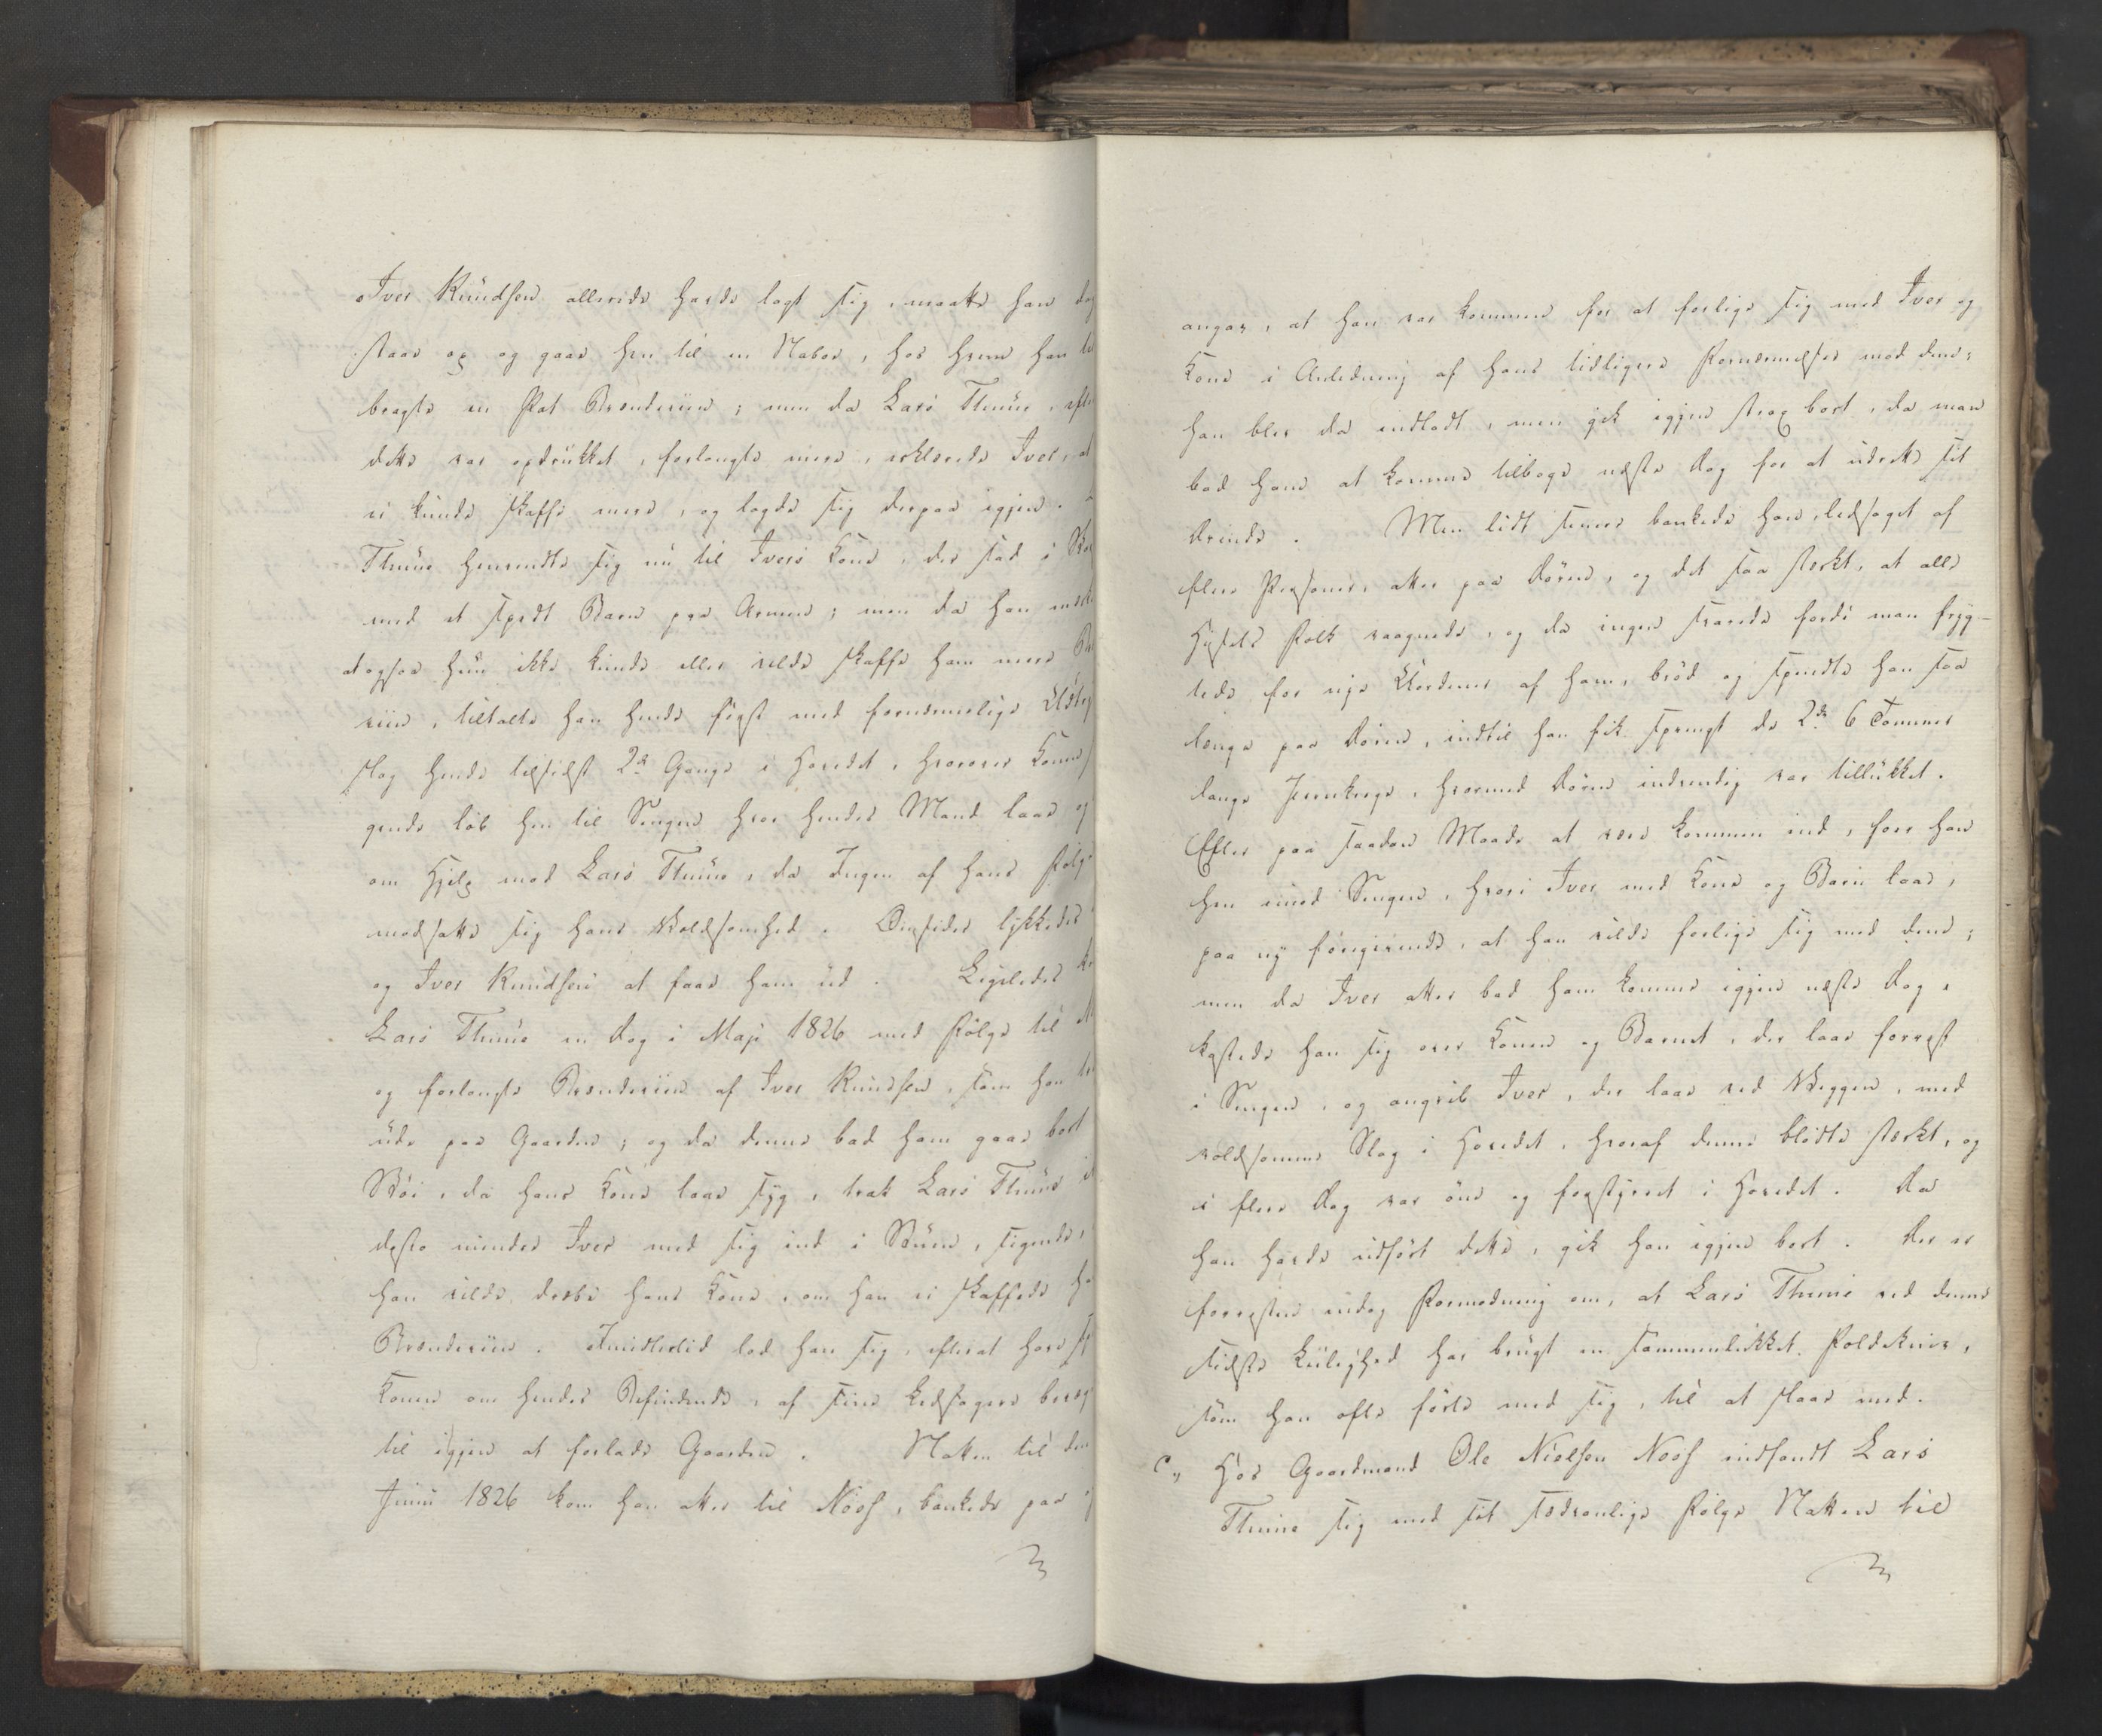 Iver Knudsen allerede havde lagt sig, maatte han dog
staae op og gaae hen til en Naboe, hos hvem han til
bragte en Pot Brændeviin; men da Lars Thune, efter
dette var opdrukket, forlangte mere, erklærede Iver, at
ei kunde skaffe mere, og lagde sig derpaa igjen.
Thune henvendte sig nu til Ivers Kone, der sad i
med et spædt Barn paa Armen; men da han mærk
at ogsaa hun ikke kunde eller vilde skaffe ham mere Bræ
viin, tiltalte han hende først med fornærmelige Udtry
slog hende tilsidst 2de Gange i Hovedet, hvorover Konen
gende løb hen til Sengen hvor hendes Mand laae og
om Hjelp mod Lars Thune, da Ingen af hans Følge
modsatte sig hans Voldsomhed. Omsider lykkedes
og Iver Knudsen at faae ham ud. Ligeledes ko
Lars Thune en Dag i Maji 1826 med Følge til N
og forlangte Brændeviin af Iver Knudsen, som han tra
ude paa Gaarden; og da denne bad ham gaae bort
Støi, da hans Kone laae syg, trak Lars Thune i
desto mindre Iver med sig ind i Stuen, sigende,
han vilde dræbe hans Kone, om han ei skaffede ha
Brændeviin. Imidlertid lod han sig, efterat have
Konen om hendes Befindende, af sine Ledsagere bevæge
til igjen at forlade Gaarden. Natten til den
Junii 1826 kom han atter til Noss, bankede paa og
angav, at han var kommen for at forlige sig med Iver og
Kone i Anledning af hans tidligere Fornærmelser mod dem;
han blev da indladt, men gik igjen strax bort, da man
bad ham at komme tilbage næste Dag for at udrette sit
Ærinde. Men lidt senere bankede han, ledsaget af
flere Personer, atter paa Døren, og det saa stærkt, at alle
Husets Folk vaagnede, og da ingen svarede fordi man fryg-
tede for nye Uordener af ham, brød og spændte han saa
længe paa Døren, indtil han fik sprengt de 2de 6 Tommer
lange Jernkroge, hvormed Døren indvendig var tillukket.
Efter paa saadan Maade at være kommen ind, foer han
hen imod Sengen, hvori Iver med Kone og Barn laae,
paa ny foregivende, at han vilde forlige sig med dem;
men da Iver atter bad ham komme igjen næste Dag,
kastede han sig over Konen og Barnet, der laae forrest
i Sengen, og angreb Iver, der laae ved Væggen, med
voldsomme Slag i Hovedet, hvoraf denne blødte stærkt, og
i flere Dag var øm og forstyrret i Hovedet. Da
han havde udført dette, gik han igjen bort. Der er
forresten endog Formodning om, at Lars Thune ved denne
sidste Leilighed har brugt en sammenlukket Foldekniv,
som han ofte førte med sig, til at slaae med.
c,, Hos Gaardmand Ole Nielsen Noss indfandt Lars
Thune sig med sit sædvanlige Følge Natten til